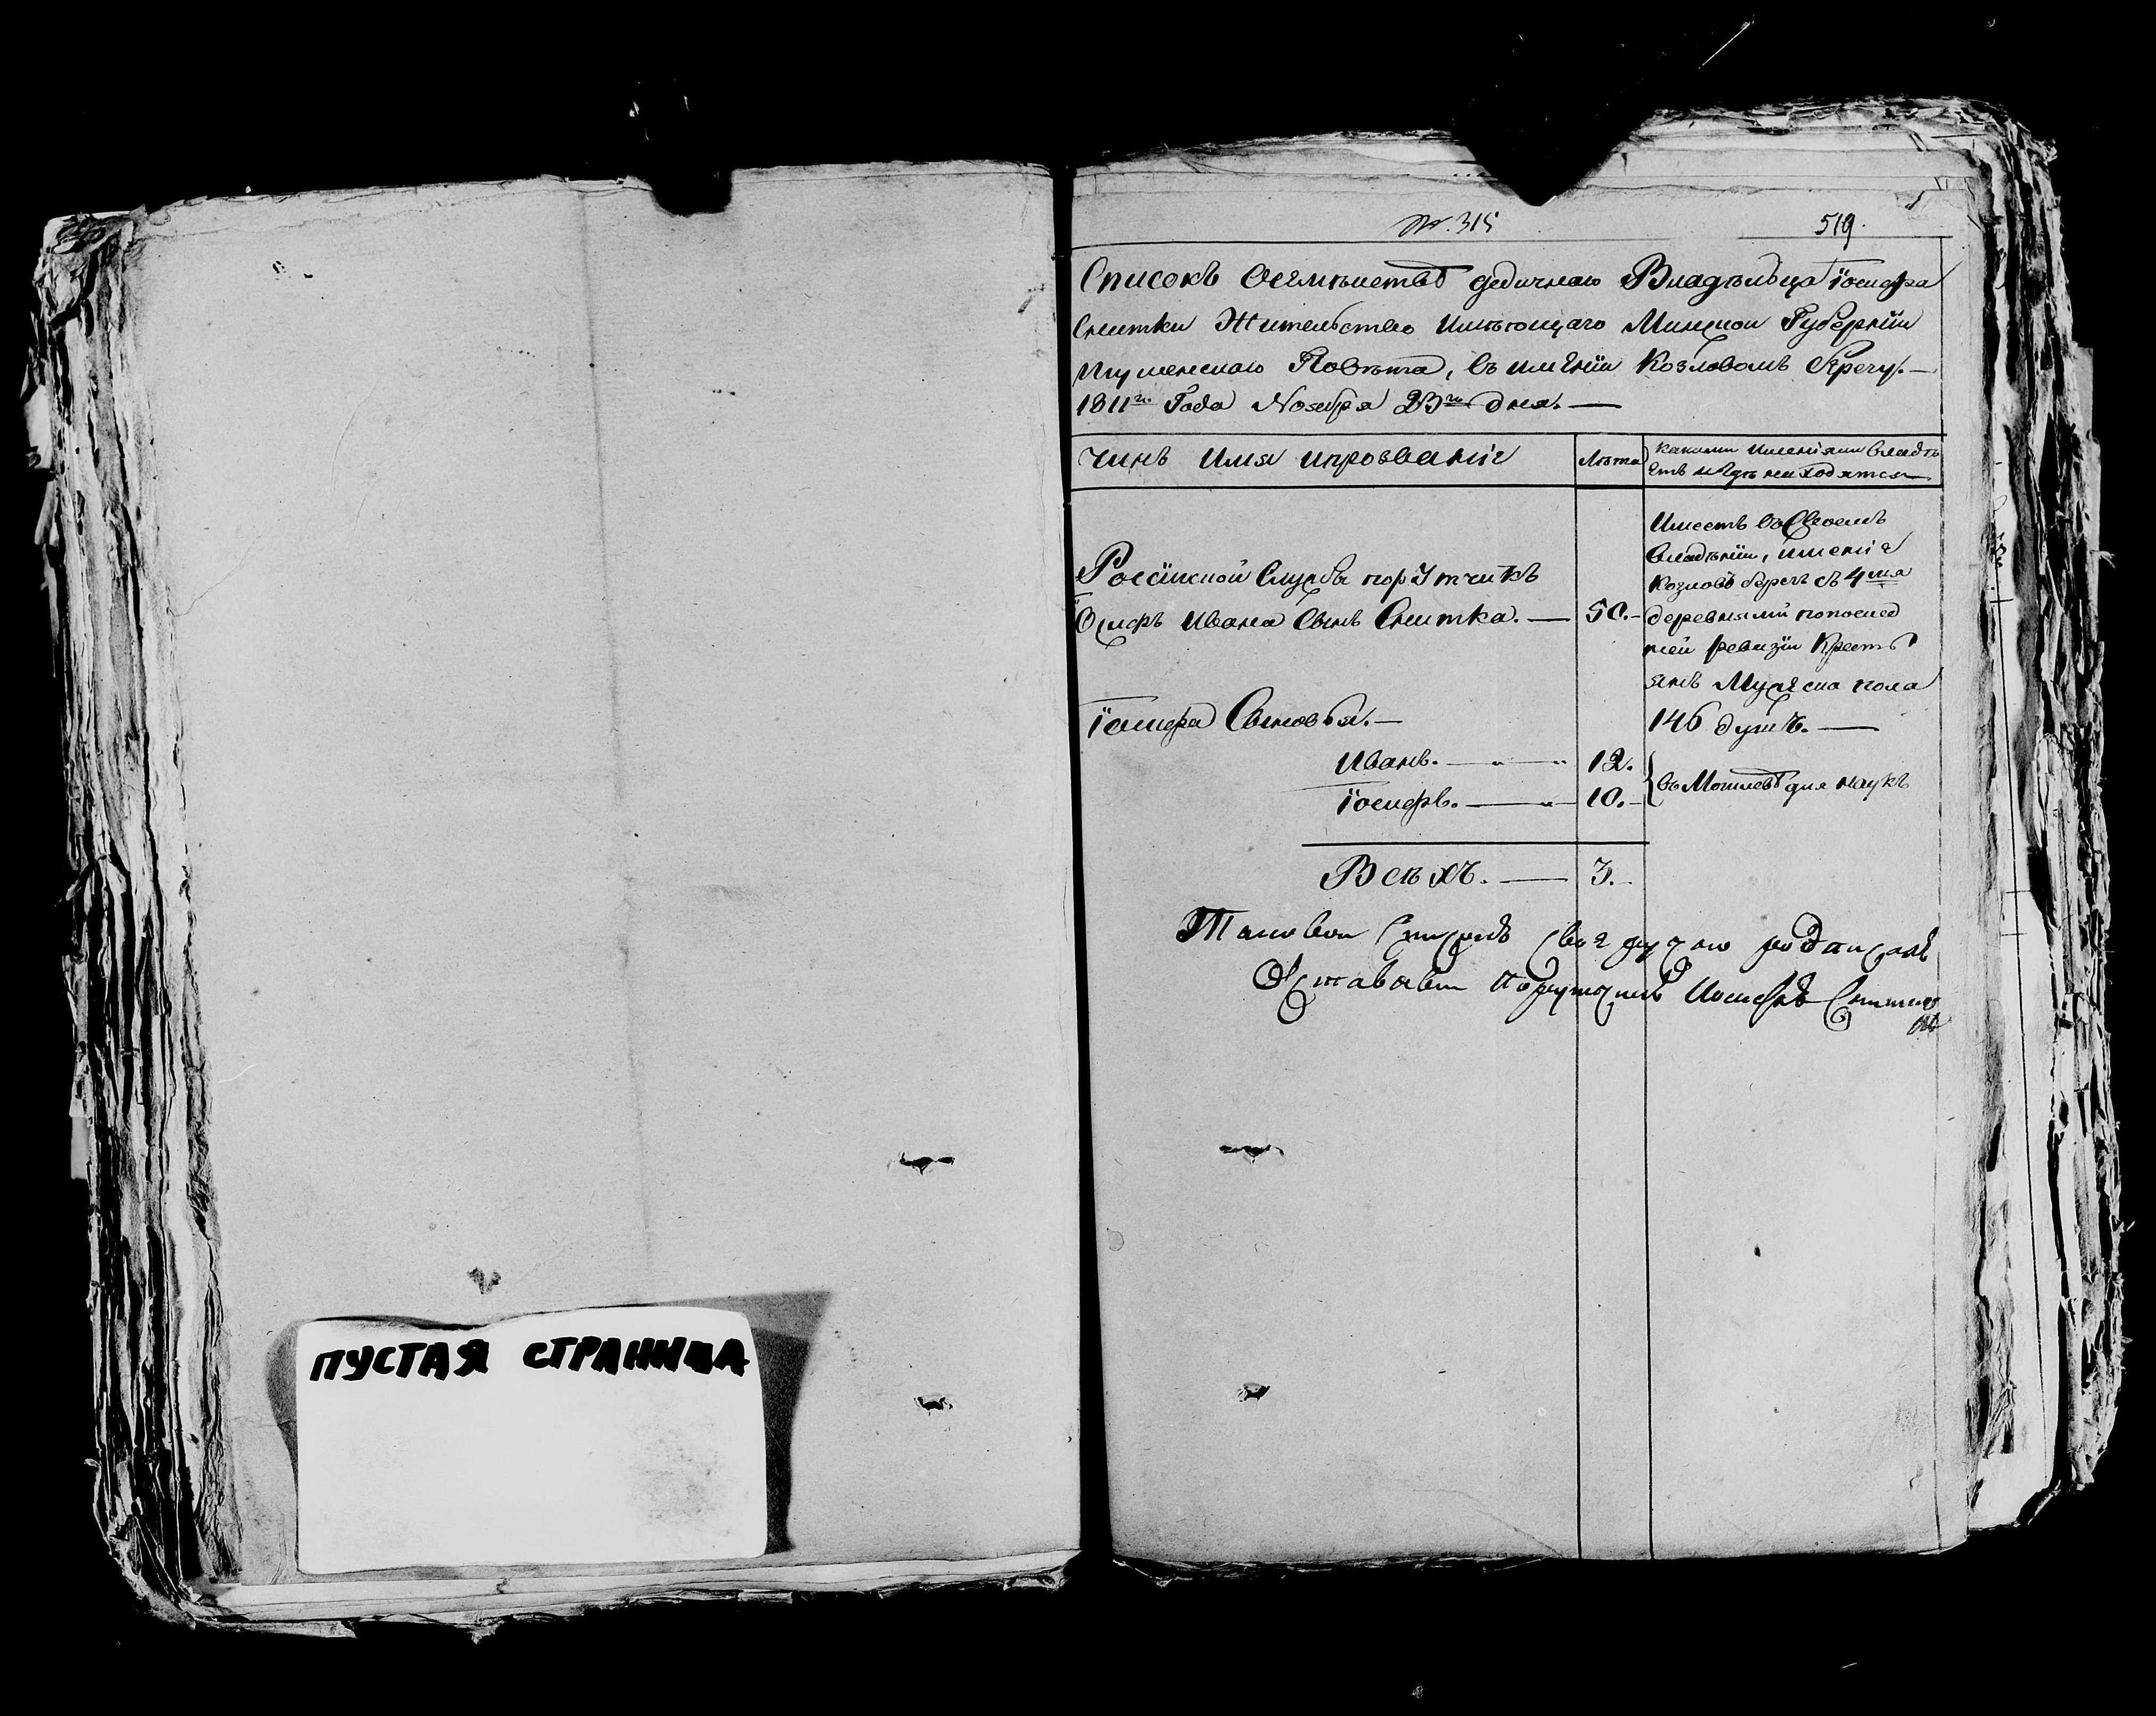 ПУСТАЯ СТРАНИЦА
№. 315
519.
Списокъ О семѣиствѣ дедичнаго Владѣльца Іосифа
Снитки Жительство имѣющаго Минской Губерніи
Игуменскаго Повѣта, въ имѣніи Козловомъ Берегу. —
1811го Года Ноября 23го дня. —
Чинъ Имя ипрозваніе
Лѣта
Какими Имѣніями Владѣ
етъ игдѣ находятся
Россійской Службы порутчикъ
Іосифъ Ивана Сынъ Снитка. — 50. –
Имеетъ въ Своемъ
Владѣніи, имѣніе
Козловъ берегъ съ 4мя
деревнями попослед
ней ревизіи Кресть
янъ Мужеска пола
146 душъ. —
Іосифа Сыновья. —
Иванъ. — „ — „ 12.
Іосифъ. — „ 10. –
въ Могилевѣ для наукъ
Всѣхъ. — 3. –
Таковой Списокъ своеручно подписалъ
Отставной Порутчикъ Иосифъ Снитко